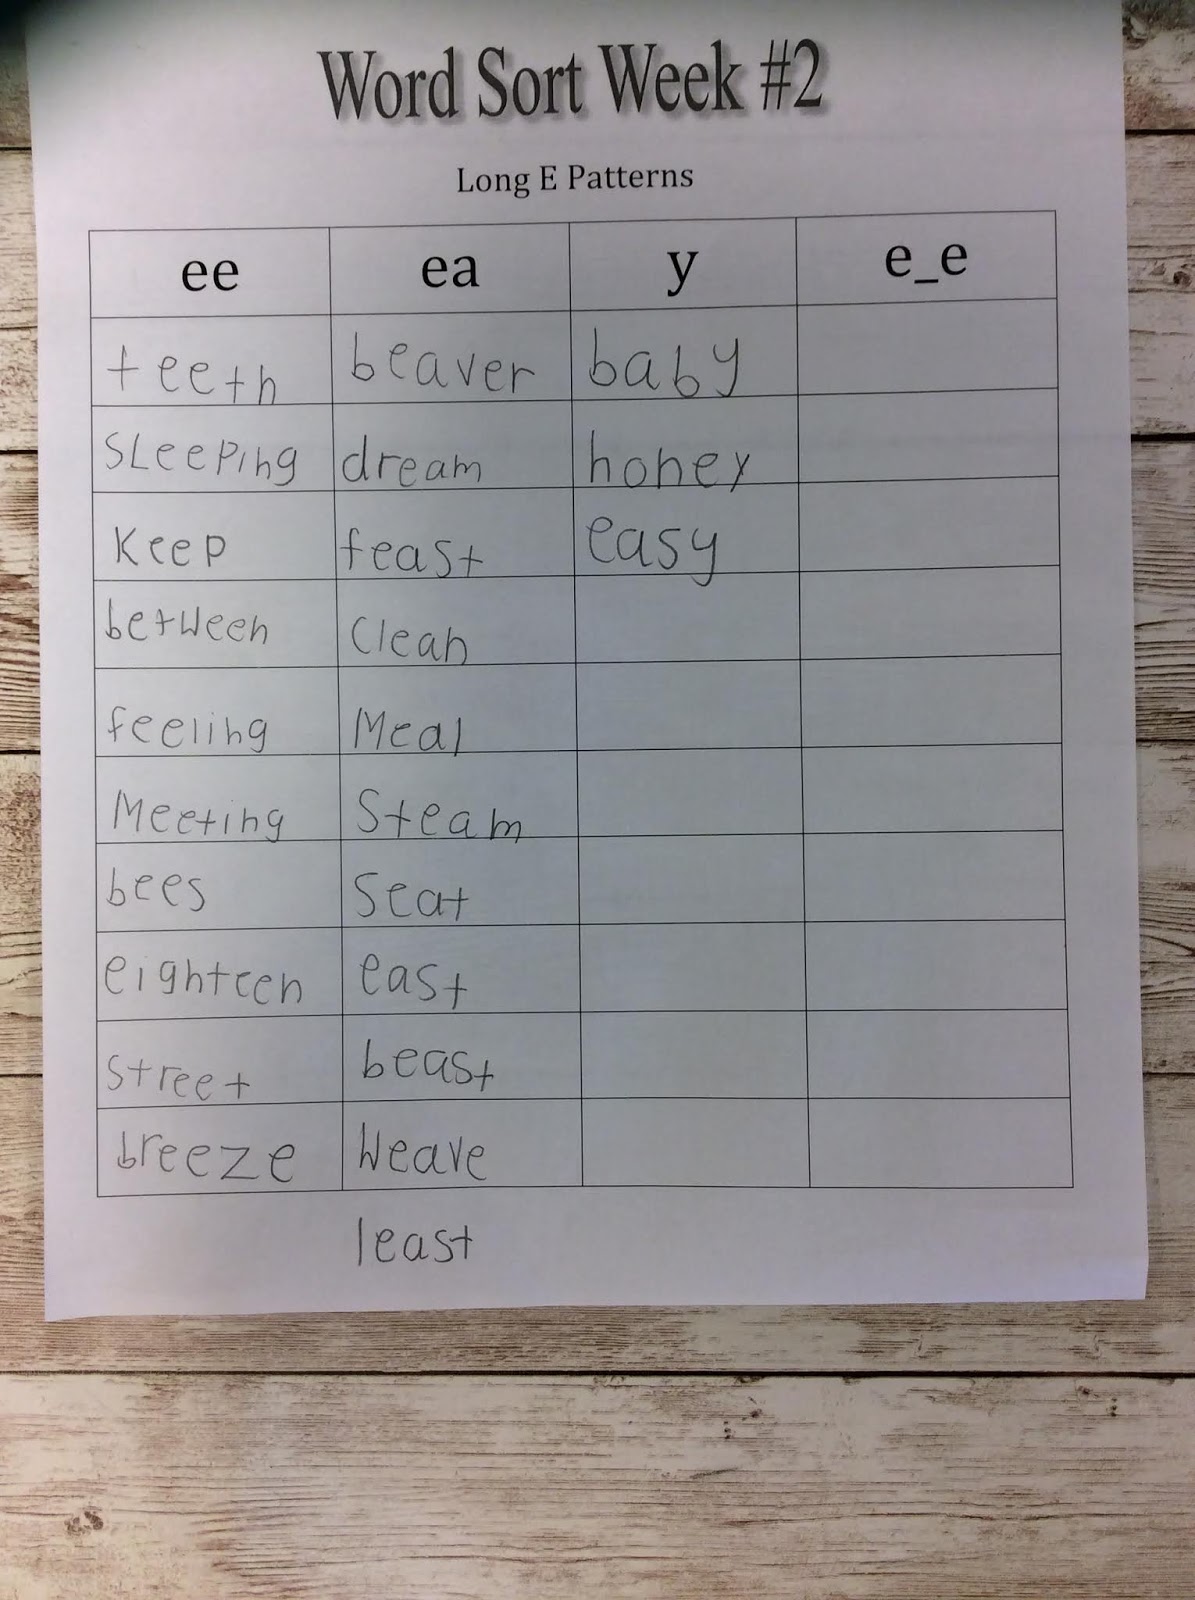 Word Sort Week #2
Long E Patterns
ee ea y e_e
teeth beaver baby
SLeePing dream honey
Keep feast easy
between Clean
feeling Meal
Meeting Steam
bees Seat
eighteen east
street beast
breeze Weave
least